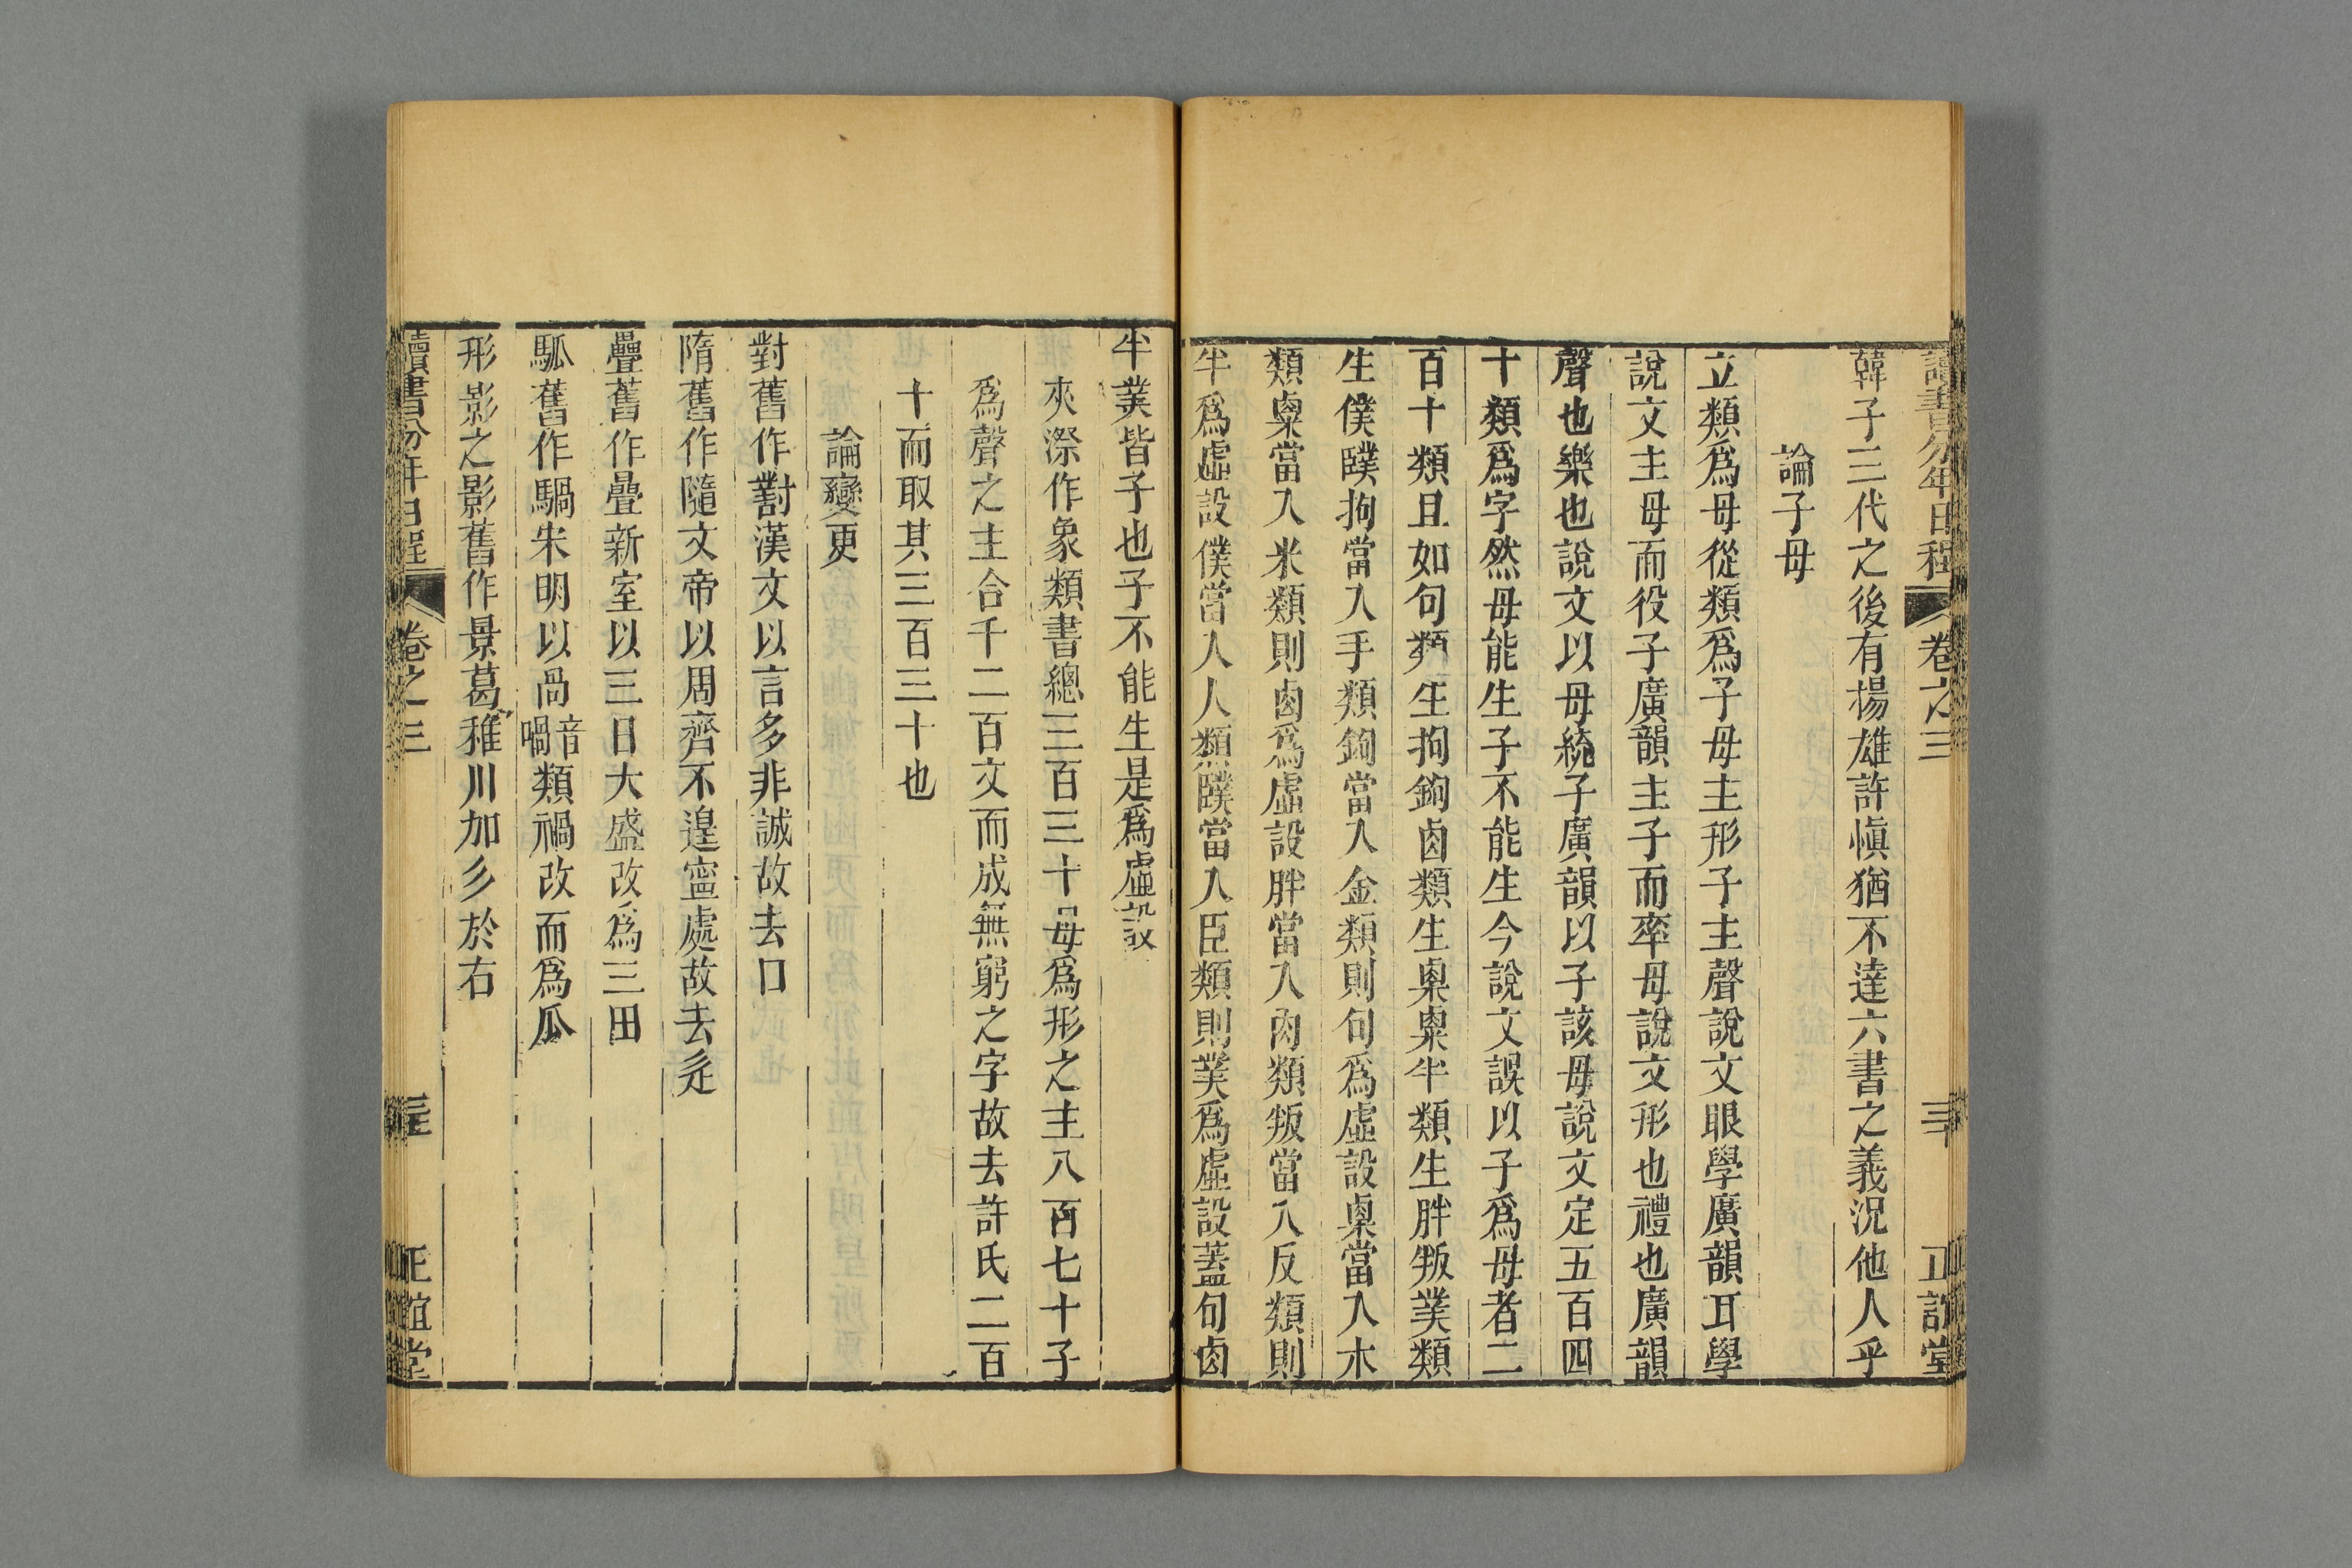 讀書分年日程 卷之三 三十 正誼堂
韓子三代之後有揚雄許愼猶不達六書之義況他人乎
論子母
立類爲母從類爲子母主形子主聲說文眼學廣韻耳學
說文主母而役子廣韻主子而率母說文形也禮也廣韻
聲也樂也說文以母統子廣韻以子該母說文定五百四
十類爲字然母能生子不能生今說文誤以子爲母者二
百十類且如句類生拘鉤鹵類生㮚粟半類生胖叛業類
生僕䑑拘當入手類鉤當入金類則句爲虛設㮚當入木
類粟當入米類則鹵爲虛設胖當入肉類叛當入反類則
半爲虛設僕當入人類䑑當入臣類則業爲虛設蓋句鹵
半業皆子也子不能生是爲虛設
夾漈作象類書總三百三十母爲形之主八百七十子
爲聲之主合千二百文而成無窮之字故去許氏二百
十而取其三百三十也
論變更
對舊作對漢文以言多非誠故去口
隋舊作隨文帝以周齊不遑寧處故去辵
疊舊作曡新室以三日大盛改爲三田
駈舊作騧宋明以咼音喎類禍改而爲瓜
形影之影舊作景葛稚川加彡於右
讀書分年日程 卷之三 正誼堂